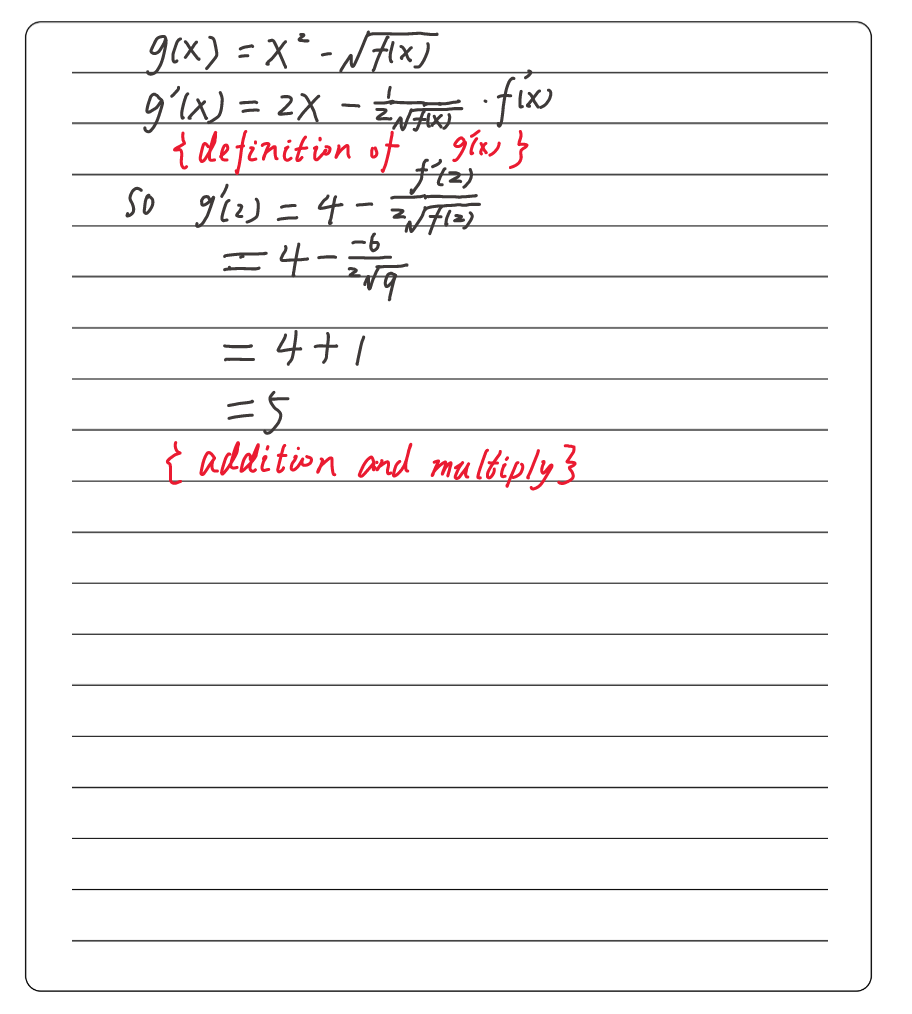 g(x) = x² - √f(x)
g'(x) = 2x - 1/(2√f(x)) · f'(x)
{definition of g'(x)}
so g'(2) = 4 - f'(2)/(2√f(2))
= 4 - -6/(2√9)
= 4 + 1
= 5
{addition and multiply}